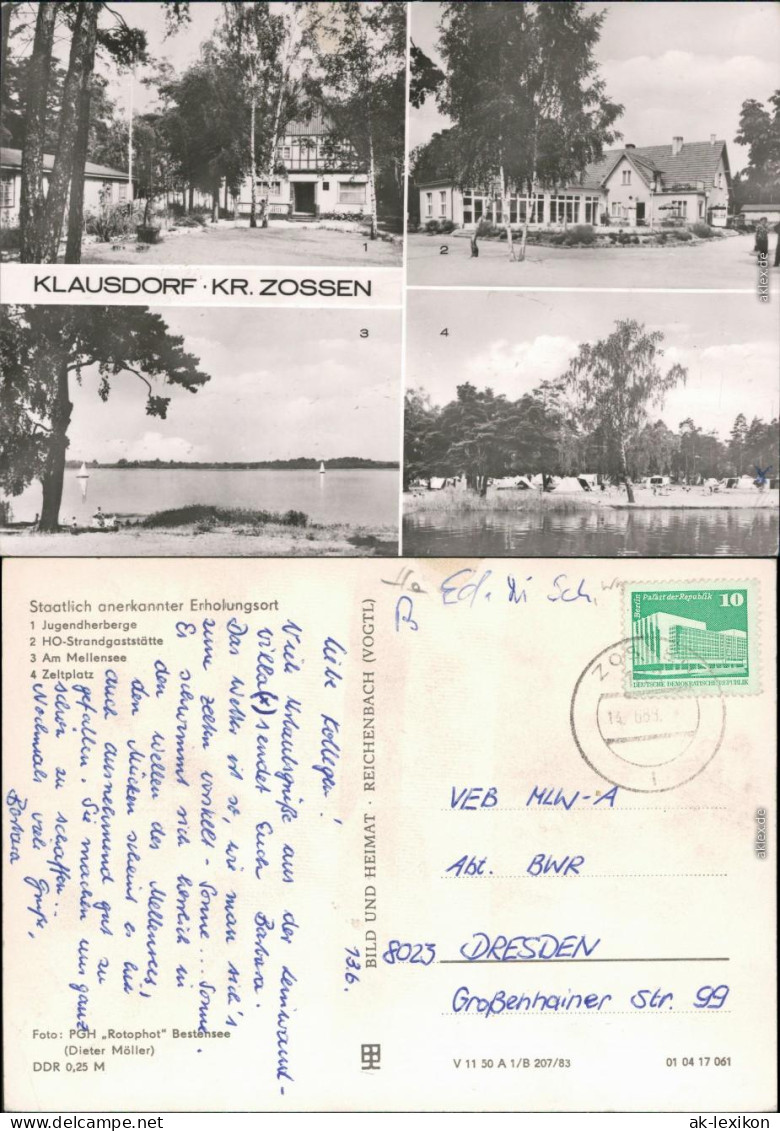 1
2
KLAUSDORF · KR. ZOSSEN
3
4
Staatlich anerkannter Erholungsort
1 Jugendherberge
2 HO-Strandgaststätte
3 Am Mellensee
4 Zeltplatz
liebe Kollegen!
Viele Urlaubsgrüße aus der Leinwand-
villa(x) sendet Euch Barbara.
Das Wetter ist so, wie man sich's
zum zelten vorstellt - Sonne... Sonne.
Es schwimmt sich herrlich in
den Wellen des Mellensees,
den Mücken scheint es hier
auch ausnehmend gut zu
gefallen. Sie machen uns ganz
schön zu schaffen..
Nochmals viele Grüße,
Barbara
13.6.
Foto: PGH „Rotophot" Bestensee
(Dieter Möller)
DDR 0,25 M
BILD UND HEIMAT · REICHENBACH (VOGTL)
Berlin Palast der Republik 10
DEUTSCHE DEMOKRATISCHE REPUBLIK
VEB MLW-A
Abt. BWR
8023 DRESDEN
Großenhainer Str. 99
V 11 50 A 1/B 207/83
01 04 17 061
aklex.de
aklex.de
www.ak-ansichtskarten.de
ak-lexikon